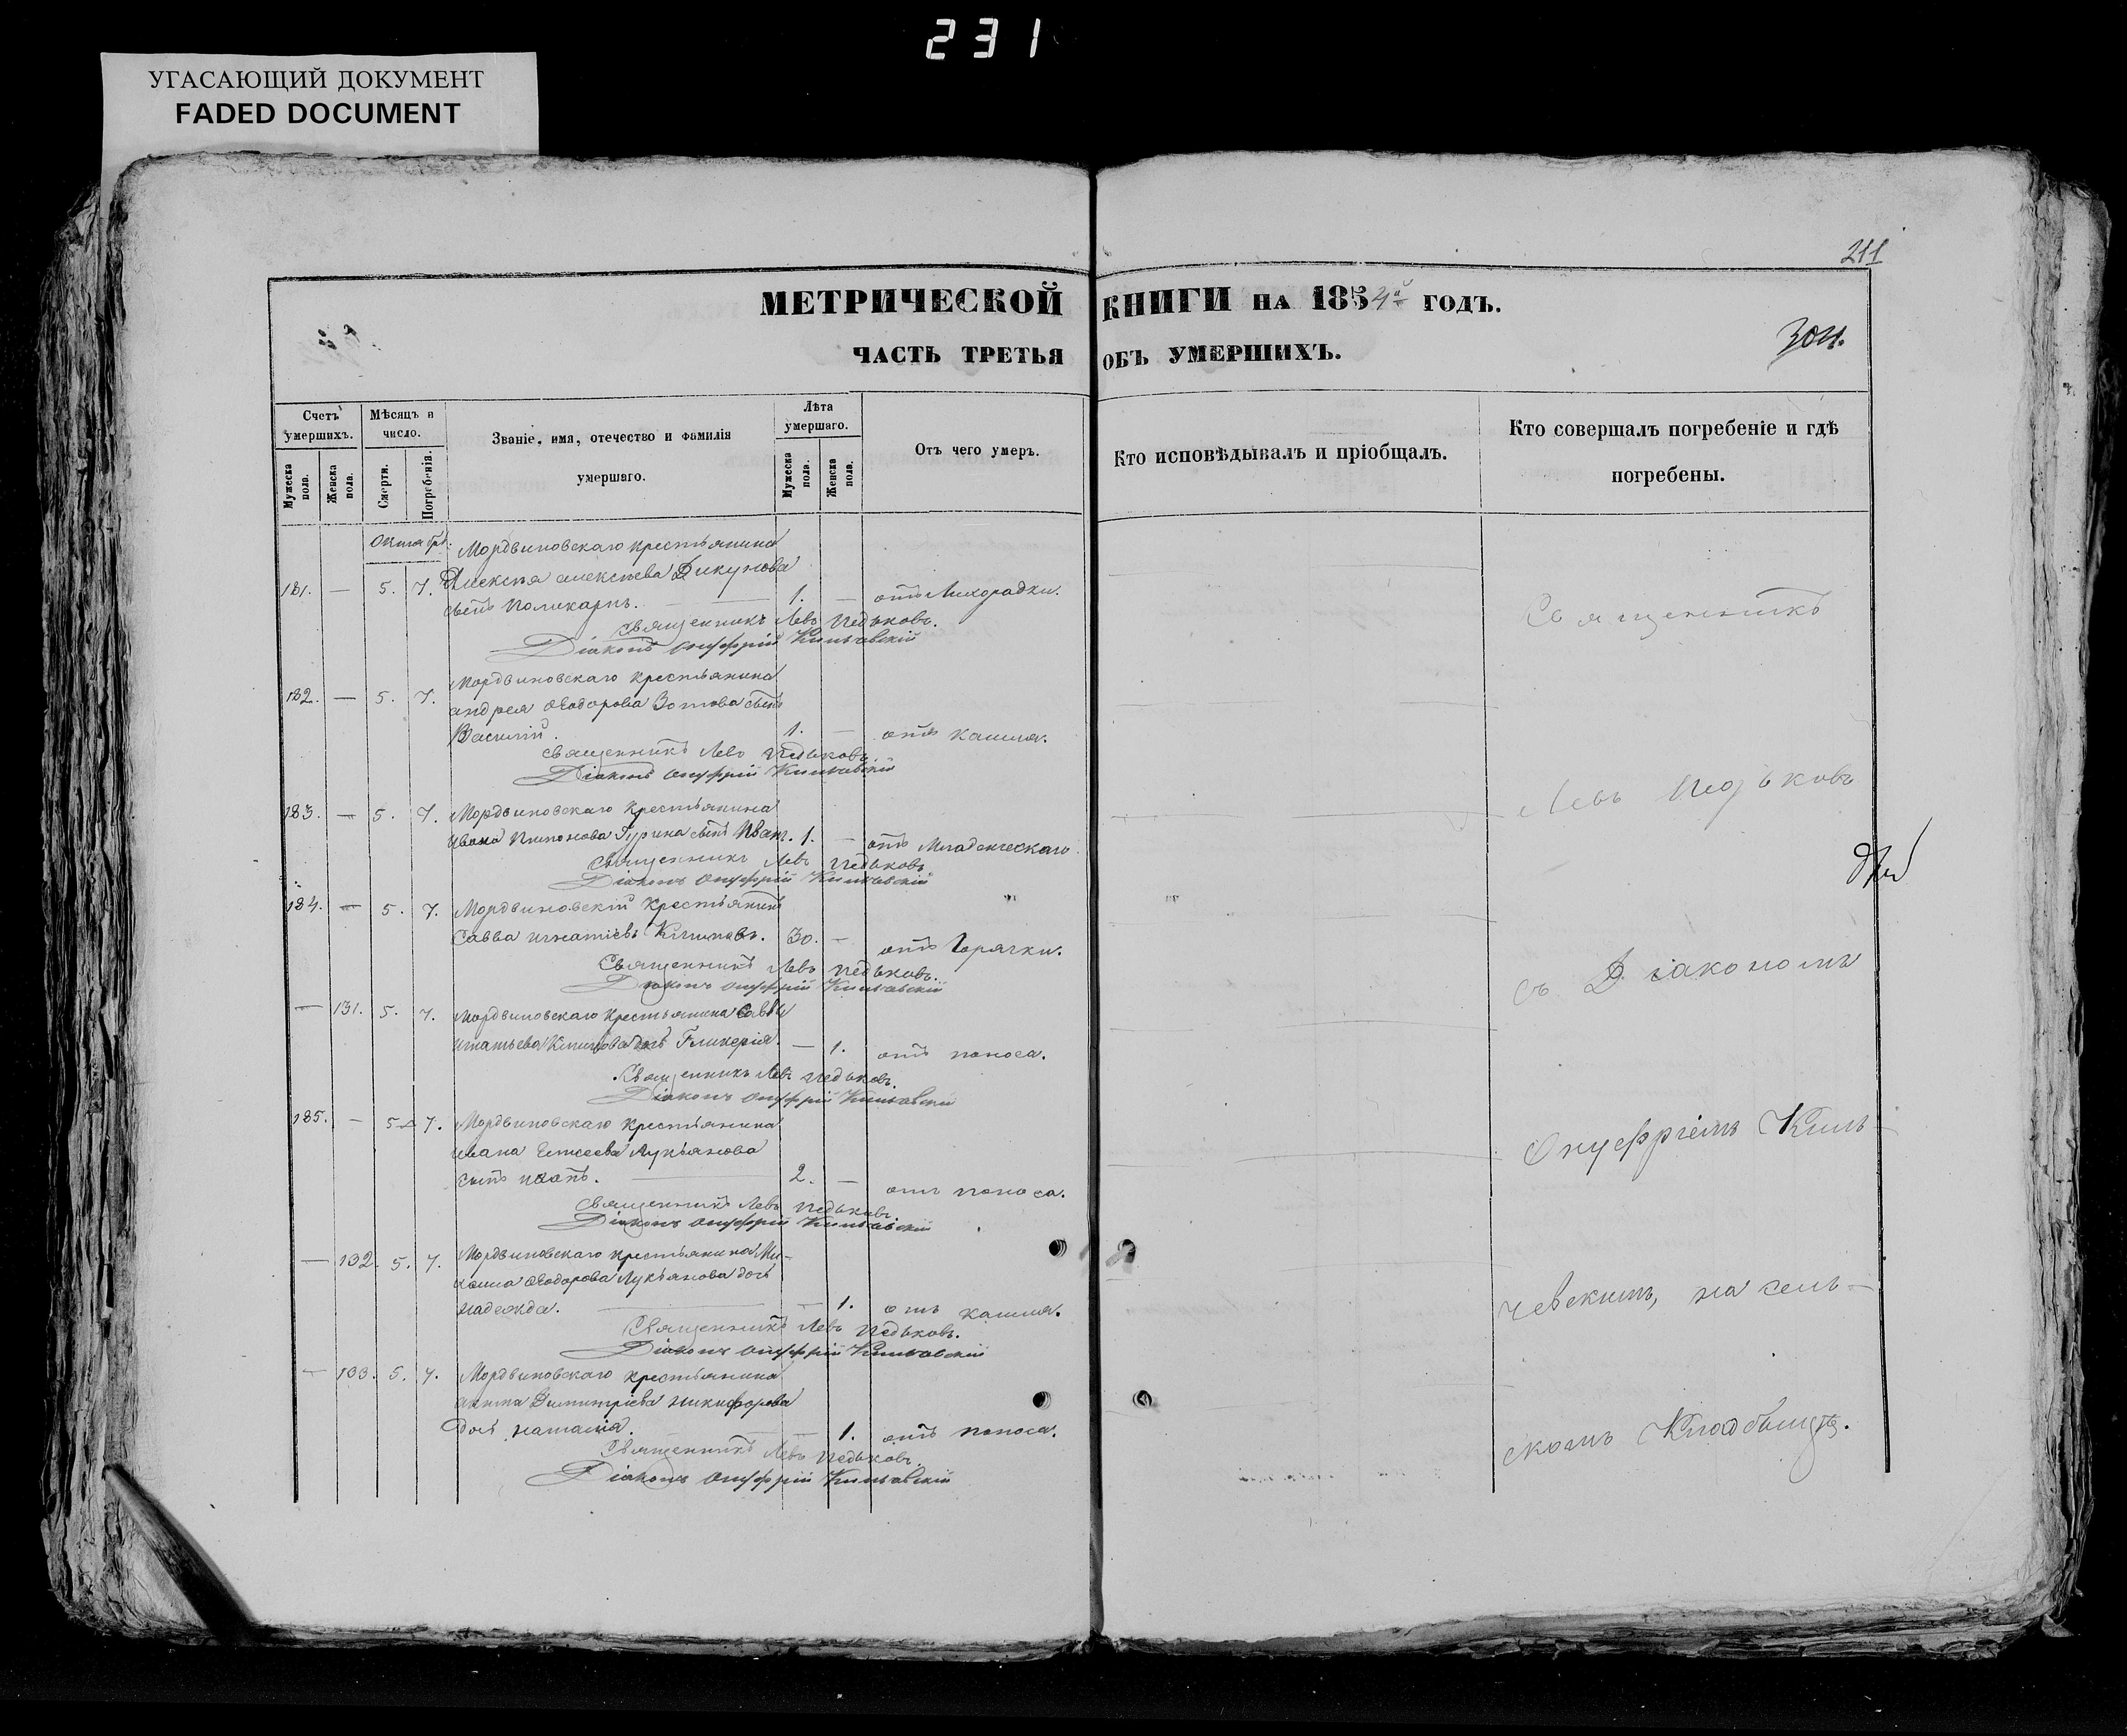 231
УГАСАЮЩИЙ ДОКУМЕНТ
FADED DOCUMENT
211
МЕТРИЧЕСКОЙ КНИГИ НА 1854й ГОДЪ.
ЧАСТЬ ТРЕТЬЯ ОБЪ УМЕРШИХЪ.
Счетъ умершихъ.
Мужеска пола.
Женска пола.
Мѣсяцъ и число.
Смерти.
Погребенія.
Званіе, имя, отечество и фамилія
умершаго.
Лѣта умершаго.
Мужеска пола.
Женска пола.
Отъ чего умеръ.
Кто исповѣдывалъ и пріобщалъ.
Кто совершалъ погребеніе и гдѣ
погребены.
Октябрь.
Мордвиновскаго крестьянина
181. — 5. 7. Алексѣя алексѣева Дикунова
сынъ поликарпъ. 1. — отъ Лихорадки.
Священникъ Левъ Педьковъ.
Діаконъ Онуфрій
Мордвиновскаго крестьянина
182. — 5. 7. андрея Ѳеодорова Зотова сынъ
Василій. 1. — отъ кашля.
Священникъ Левъ Педьковъ
Діаконъ Онуфрій
183. — 5. 7. Мордвиновскаго крестьянина
Ивана Гурина сынъ Иванъ. 1. — отъ Младенческаго
Священникъ Левъ Педьковъ
Діаконъ Онуфрій
184. — 5. 7. Мордвиновскій крестьянинъ
Савва игнатіевъ Климовъ. 30. — отъ Горячки.
Священникъ Левъ Педьковъ.
Діаконъ Онуфрій
— 131. 5. 7. Мордвиновскаго крестьянина Саввы
игнатьева Климова дочь Гликерія — 1. отъ поноса.
Священникъ Левъ Педьковъ.
Діаконъ Онуфрій
185. — 5 7. Мордвиновскаго крестьянина
ивана Елисеева Лукьянова
сынъ 2. — отъ поноса.
Священникъ Левъ Педьковъ.
Діаконъ Онуфрій
— 132. 5. 7. Мордвиновскаго крестьянина
Ѳеодорова Лукьянова дочь
надежда. — 1. отъ кашля.
Священникъ Левъ Педьковъ.
Діаконъ Онуфрій
— 133. 5. 7. Мордвиновскаго крестьянина
Димитріева никифорова
дочь наталія. — 1. отъ поноса.
Священникъ Левъ Педьковъ.
Діаконъ Онуфрій
Священникъ
Левъ Педьковъ
съ Діакономъ
Онуфріемъ Киль-
чевскимъ, на сель-
скомъ Кладбищѣ.